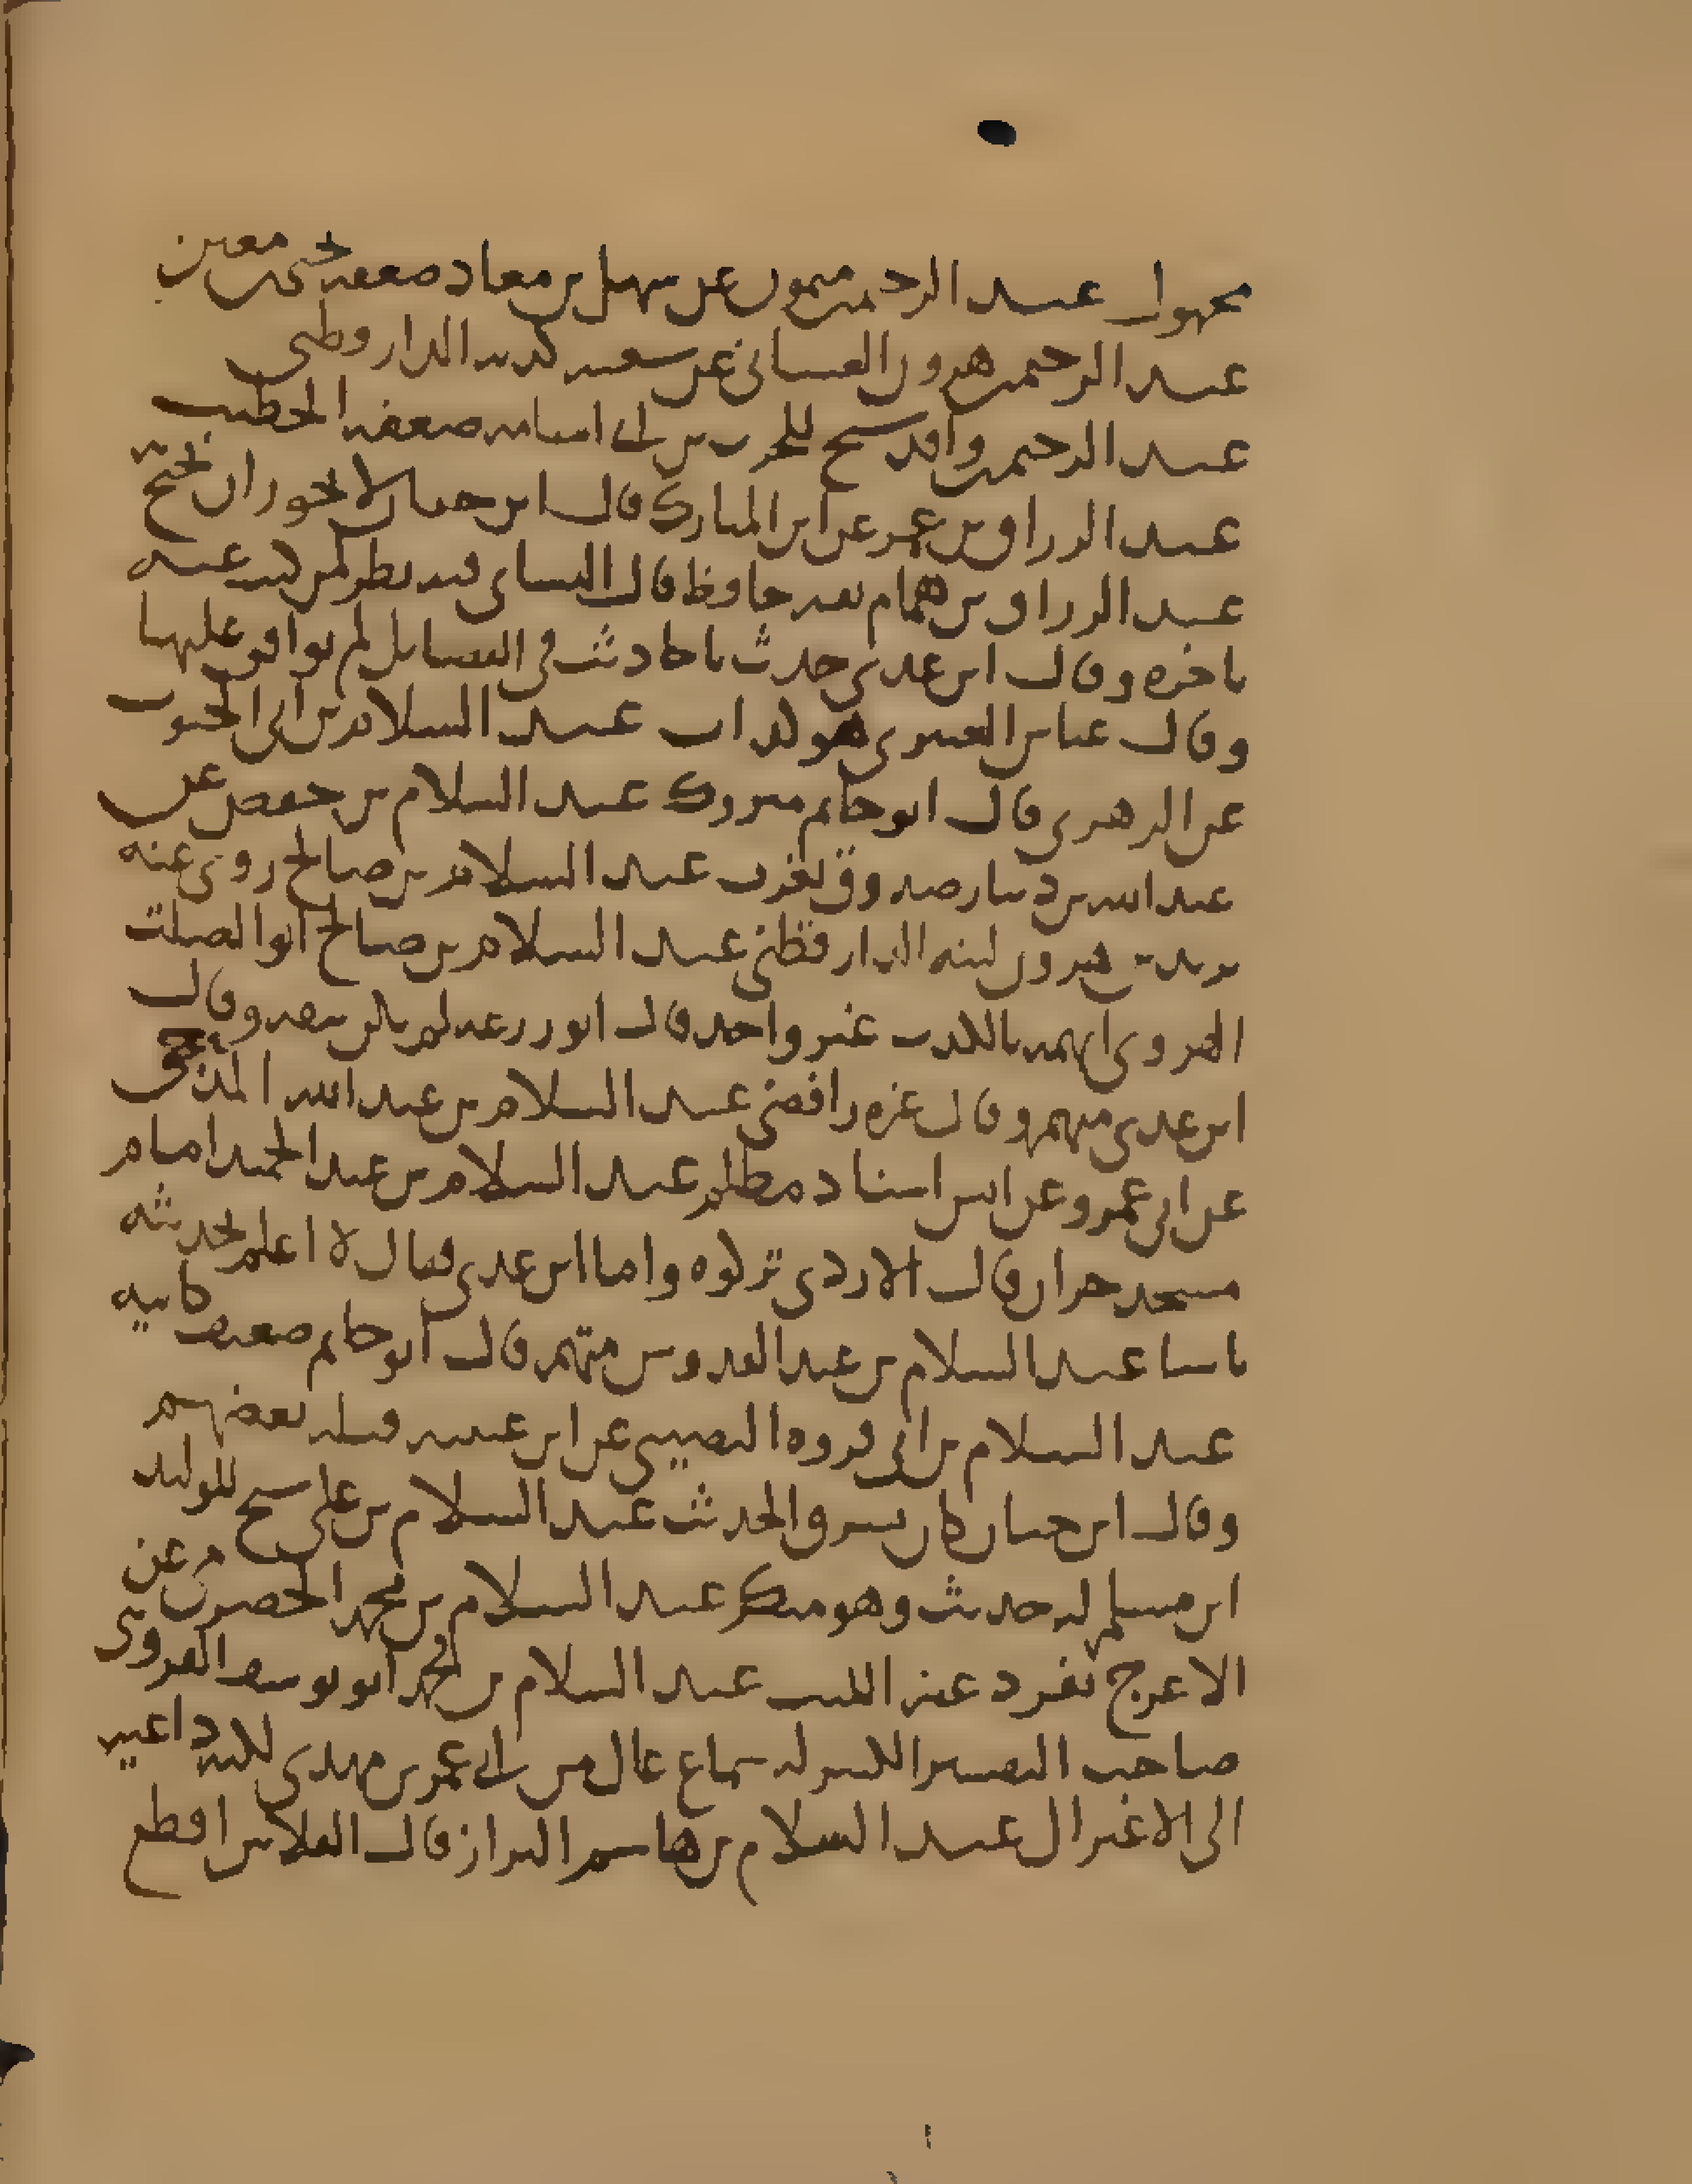 مجهول عبد الرحيم بن ميمون عن سهل بن معاذ ضعفه يحيى بن معين
عبد الرحيم بن هرون الغساني عن سعيد كذبه الدارقطني
عبد الرحيم بن واقد شيخ للحرث بن ابي اسامه ضعفه الخطيب
عبد الرزاق بن عمر عن ابن المبارك قال ابن حبان لا يجوز ان يحتج به
عبد الرزاق بن همام ثقه حافظ قال النسائي فيه نظر لمن كتب عنه
باخره وقال ابن عدي حدث باحاديث في الفضائل لم يوافق عليها
وقال عباس العنبري هو كذاب عبد السلام بن ابي الجنوب
عن الزهري قال ابو حاتم متروك عبد السلام بن حفص عن
عبد الله بن دينار صدوق يغرب عبد السلام بن صالح روى عنه
يزيد بن هرون لينه الدارقطني عبد السلام بن صالح ابو الصلت
الهروي اتهمه بالكذب غير واحد قال ابو زرعه لم يكن بثقه وقال
ابن عدي متهم وقال غيره رافضي عبد السلام بن عبد الله المذحجي
عن ابي عمرو عن انس اسناد مظلم عبد السلام بن عبد الحميد امام
مسجد حران قال الازدي تركوه واما ابن عدي فقال لا اعلم بحديثه
باسا عبد السلام بن عبد القدوس متهم قال ابو حاتم ضعيف كابيه
عبد السلام بن ابي فروه النصيبي عن ابن عيينه قبله بعضهم
وقال ابن حبان كان يسرق الحديث عبد السلام بن علي شيخ للوليد
ابن مسلم له حديث وهو منكر عبد السلام بن محمد الحضرمي عن
الاعرج تفرد عنه الليث عبد السلام بن محمد ابو يوسف القزويني
صاحب التفسير الكبير له سماع عال من ابي عمر بن مهدي لكنه داعيه
الى الاعتزال عبد السلام بن هاشم البزاز قال الفلاس اقطع